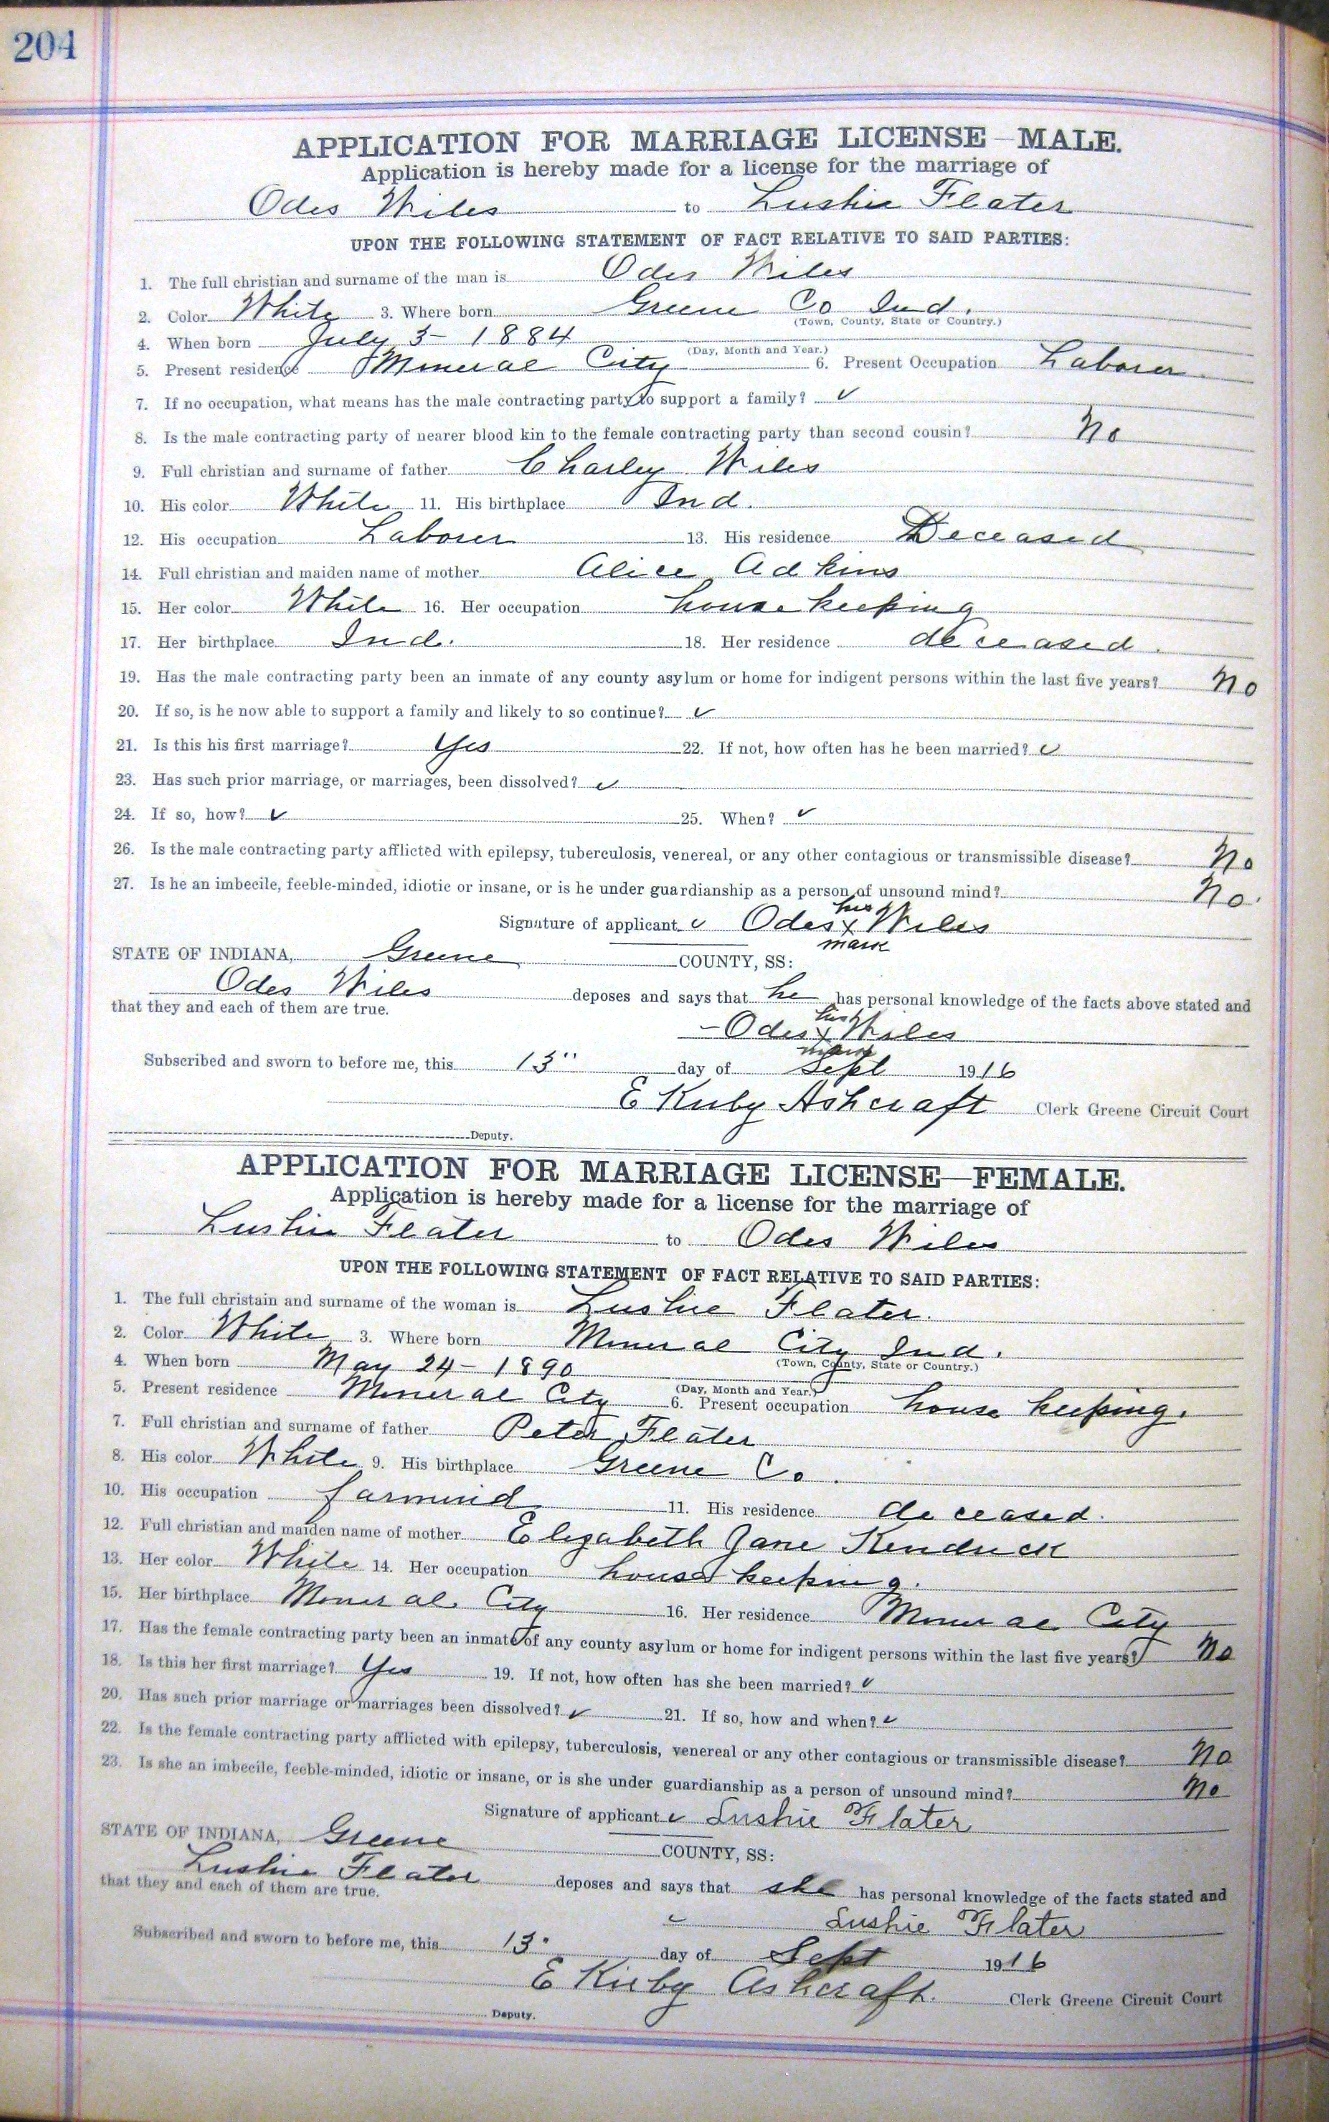 204
APPLICATION FOR MARRIAGE LICENSE—MALE.
Application is hereby made for a license for the marriage of
Odes Wiles to Lushie Flater
UPON THE FOLLOWING STATEMENT OF FACT RELATIVE TO SAID PARTIES:
1. The full christian and surname of the man is Odes Wiles
2. Color White 3. Where born Greene Co Ind.
(Town, County, State or Country.)
4. When born July 3- 1884
(Day, Month and Year.)
5. Present residence Mineral City 6. Present Occupation Laborer
7. If no occupation, what means has the male contracting party to support a family? ✓
8. Is the male contracting party of nearer blood kin to the female contracting party than second cousin? No
9. Full christian and surname of father Charley Wiles
10. His color White 11. His birthplace Ind.
12. His occupation Laborer 13. His residence Deceased
14. Full christian and maiden name of mother Alice Adkins
15. Her color White 16. Her occupation house keeping
17. Her birthplace Ind. 18. Her residence deceased.
19. Has the male contracting party been an inmate of any county asylum or home for indigent persons within the last five years? No
20. If so, is he now able to support a family and likely to so continue? ✓
21. Is this his first marriage? Yes 22. If not, how often has he been married? ✓
23. Has such prior marriage, or marriages, been dissolved? ✓
24. If so, how? ✓ 25. When? ✓
26. Is the male contracting party afflicted with epilepsy, tuberculosis, venereal, or any other contagious or transmissible disease? No
27. Is he an imbecile, feeble-minded, idiotic or insane, or is he under guardianship as a person of unsound mind? No.
his
Signature of applicant ✓ Odes x Wiles
mark
STATE OF INDIANA, Greene COUNTY, SS:
Odes Wiles deposes and says that he has personal knowledge of the facts above stated and
that they and each of them are true.
his
- Odes x Wiles
mark
Subscribed and sworn to before me, this 13" day of Sept 1916
E Kirby Ashcraft Clerk Greene Circuit Court
Deputy.
APPLICATION FOR MARRIAGE LICENSE—FEMALE.
Application is hereby made for a license for the marriage of
Lushie Flater to Odes Wiles
UPON THE FOLLOWING STATEMENT OF FACT RELATIVE TO SAID PARTIES:
1. The full christain and surname of the woman is Lushie Flater.
2. Color White 3. Where born Mineral City Ind.
(Town, County, State or Country.)
4. When born May 24- 1890
(Day, Month and Year.)
5. Present residence Mineral City 6. Present occupation house keeping.
7. Full christian and surname of father Peter Flater
8. His color White 9. His birthplace Greene Co.
10. His occupation farmind 11. His residence deceased.
12. Full christian and maiden name of mother Elizabeth Jane Kendrick
13. Her color White 14. Her occupation house keeping.
15. Her birthplace Mineral City 16. Her residence Mineral City
17. Has the female contracting party been an inmate of any county asylum or home for indigent persons within the last five years? No
18. Is this her first marriage? Yes 19. If not, how often has she been married? ✓
20. Has such prior marriage or marriages been dissolved? ✓ 21. If so, how and when? ✓
22. Is the female contracting party afflicted with epilepsy, tuberculosis, venereal or any other contagious or transmissible disease? No
23. Is she an imbecile, feeble-minded, idiotic or insane, or is she under guardianship as a person of unsound mind? No
Signature of applicant ✓ Lushie Flater
STATE OF INDIANA, Greene COUNTY, SS:
Lushie Flater deposes and says that she has personal knowledge of the facts stated and
that they and each of them are true.
✓ Lushie Flater
Subscribed and sworn to before me, this 13" day of Sept 1916
E Kirby Ashcraft. Clerk Greene Circuit Court
Deputy.